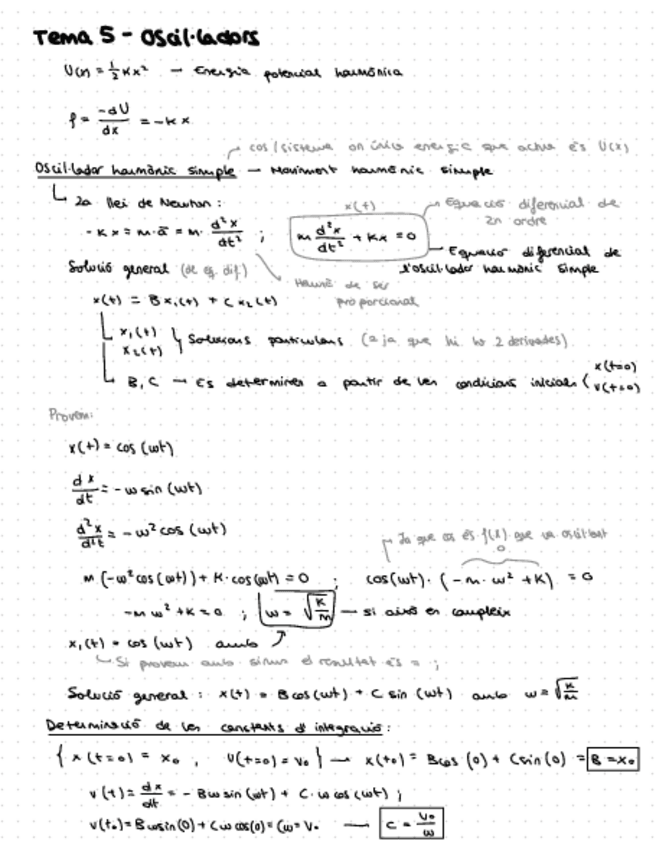 Tema 5 - Oscil·ladors
U(x) = 1/2 Kx² — Energia potencial harmònica
f = -dU/dx = -Kx
cos/sistema on única energia que actua és U(x)
Oscil·lador harmònic simple — Moviment harmònic simple
2a llei de Newton:
x(t)
Equació diferencial de
2n ordre
-Kx = m·a = m· d²x/dt² ; m d²x/dt² + Kx = 0
Equació diferencial de
l'oscil·lador harmònic simple
Solució general (de eq. dif.)
Haurà de ser
proporcional
x(t) = Bx₁(t) + Cx₂(t)
x₁(t)
x₂(t) } Solucions particulars (2 ja que hi ha 2 derivades).
B, C → Es determinen a partir de les condicions inicials { x(t=0)
v(t=0)
Provem:
x(t) = cos(ωt)
dx/dt = -ω sin(ωt)
d²x/dt² = -ω² cos(ωt)
Ja que cos és f(x) que va oscil·lant
0
m(-ω² cos(ωt)) + K·cos(ωt) = 0 ; cos(ωt)·(-m·ω² + K) = 0
-mω² + K = 0 ; ω = √(K/m) — si això es compleix
x₁(t) = cos(ωt) amb
Si provem amb sinus el resultat és = ;
Solució general : x(t) = B cos(ωt) + C sin(ωt) amb ω = √(K/m)
Determinació de les constants d'integració:
{ x(t=0) = x₀ , v(t=0) = v₀ } → x(t₀) = B cos(0) + C sin(0) = B = x₀
v(t) = dx/dt = -Bω sin(ωt) + C·ω cos(ωt) ;
v(t₀) = Bω sin(0) + Cω cos(0) = Cω = v₀ → C = v₀/ω